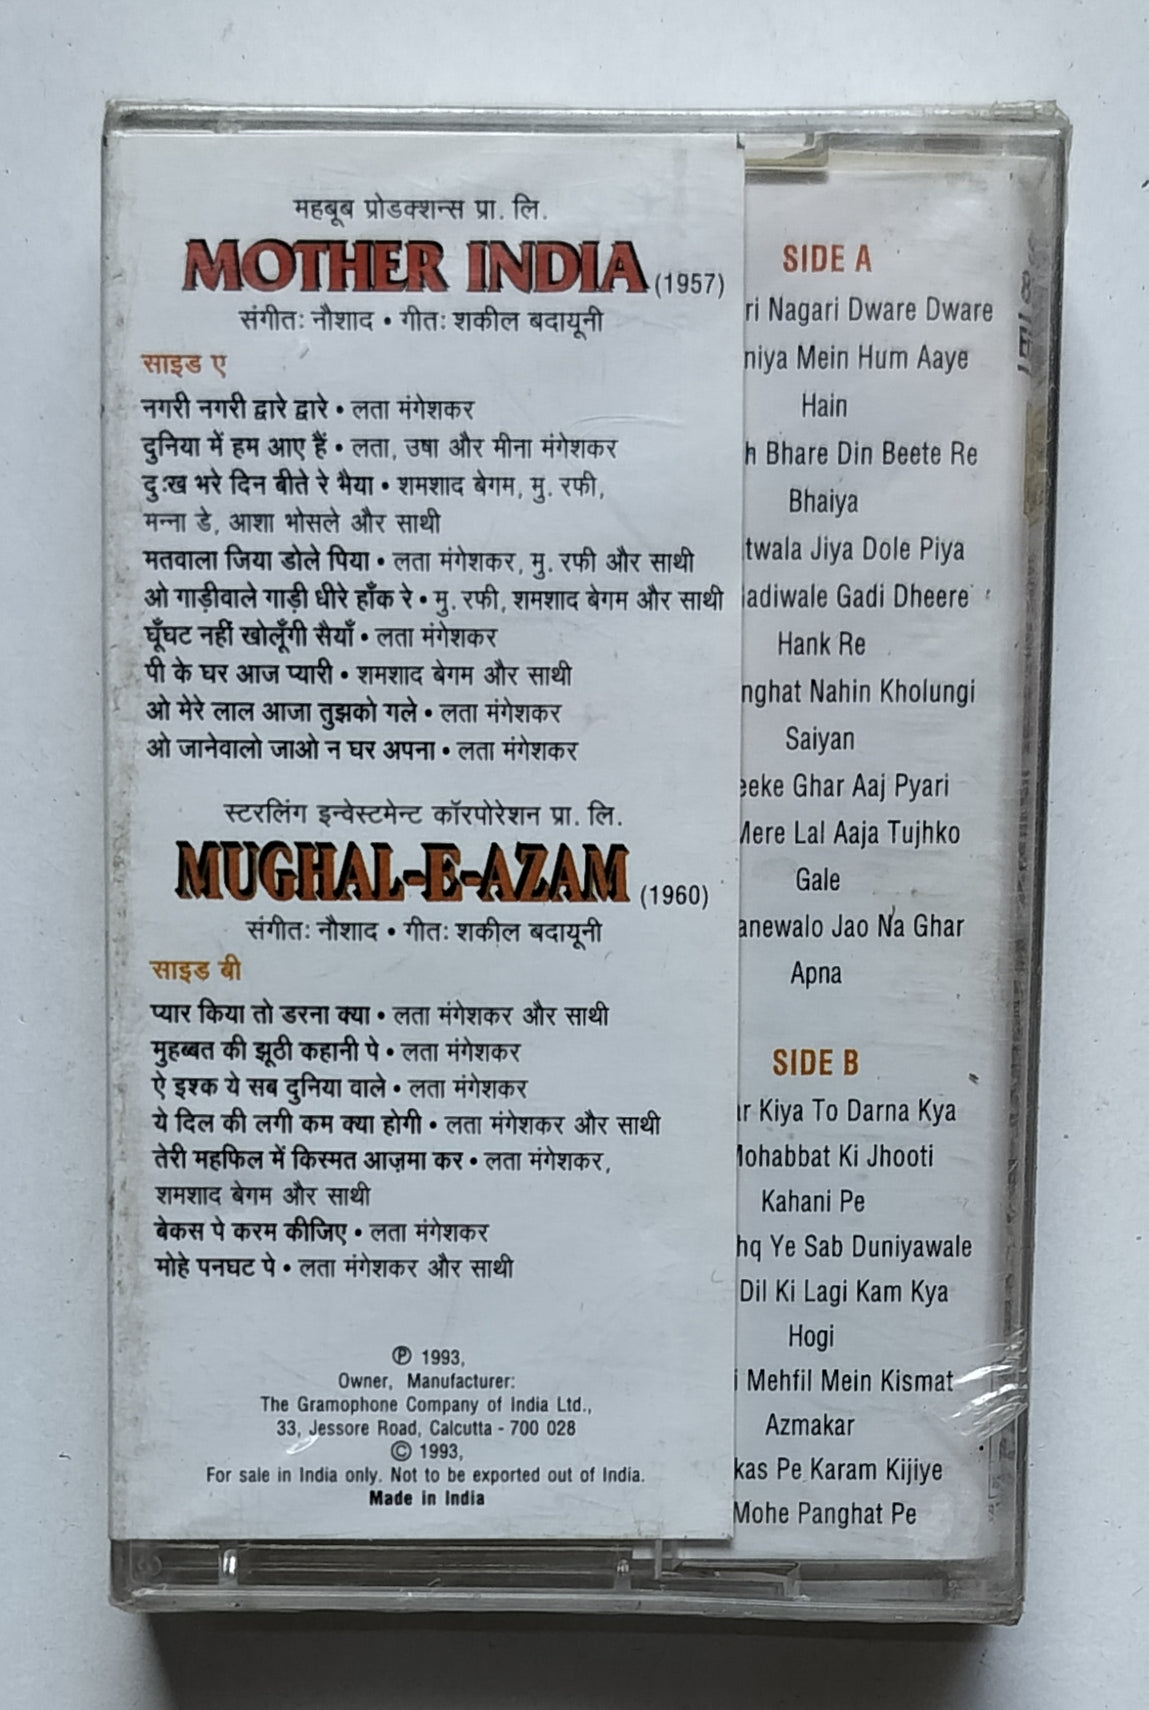 महबूब प्रोडक्शन्स प्रा. लि.
MOTHER INDIA (1957)
संगीतः नौशाद • गीतः शकील बदायूनी
साइड ए
नगरी नगरी द्वारे द्वारे • लता मंगेशकर
दुनिया में हम आए हैं • लता, उषा और मीना मंगेशकर
दुःख भरे दिन बीते रे भैया • शमशाद बेगम, मु. रफी,
मन्ना डे, आशा भोसले और साथी
मतवाला जिया डोले पिया • लता मंगेशकर, मु. रफी और साथी
ओ गाड़ीवाले गाड़ी धीरे हाँक रे • मु. रफी, शमशाद बेगम और साथी
घूँघट नहीं खोलूँगी सैयाँ • लता मंगेशकर
पी के घर आज प्यारी • शमशाद बेगम और साथी
ओ मेरे लाल आजा तुझको गले • लता मंगेशकर
ओ जानेवालो जाओ न घर अपना • लता मंगेशकर
स्टरलिंग इन्वेस्टमेन्ट कॉरपोरेशन प्रा. लि.
MUGHAL-E-AZAM (1960)
संगीतः नौशाद • गीतः शकील बदायूनी
साइड बी
प्यार किया तो डरना क्या • लता मंगेशकर और साथी
मुहब्बत की झूठी कहानी पे • लता मंगेशकर
ऐ इश्क ये सब दुनिया वाले • लता मंगेशकर
ये दिल की लगी कम क्या होगी • लता मंगेशकर और साथी
तेरी महफिल में किस्मत आज़मा कर • लता मंगेशकर,
शमशाद बेगम और साथी
बेकस पे करम कीजिए • लता मंगेशकर
मोहे पनघट पे • लता मंगेशकर और साथी
Ⓟ 1993,
Owner, Manufacturer:
The Gramophone Company of India Ltd.,
33, Jessore Road, Calcutta - 700 028
© 1993,
For sale in India only. Not to be exported out of India.
Made in India
SIDE A
ri Nagari Dware Dware
niya Mein Hum Aaye
Hain
h Bhare Din Beete Re
Bhaiya
twala Jiya Dole Piya
adiwale Gadi Dheere
Hank Re
nghat Nahin Kholungi
Saiyan
eeke Ghar Aaj Pyari
Mere Lal Aaja Tujhko
Gale
anewalo Jao Na Ghar
Apna
SIDE B
ar Kiya To Darna Kya
Mohabbat Ki Jhooti
Kahani Pe
hq Ye Sab Duniyawale
Dil Ki Lagi Kam Kya
Hogi
i Mehfil Mein Kismat
Azmakar
kas Pe Karam Kijiye
Mohe Panghat Pe